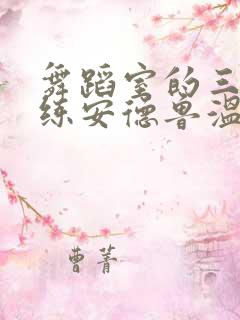 舞蹈室的三
练安德鲁温
曹菁